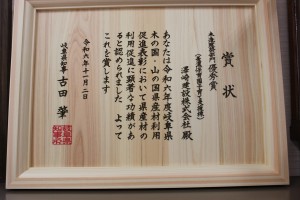 賞状
木造施設部門 優秀賞
澤崎建設株式会社 殿
あなたは令和六年度岐阜県
木の国・山の国県産材利用
促進表彰において県産材の
利用促進に顕著な功績があ
ると認められました よって
これを賞します
令和六年十一月二日
岐阜県知事 古田 肇